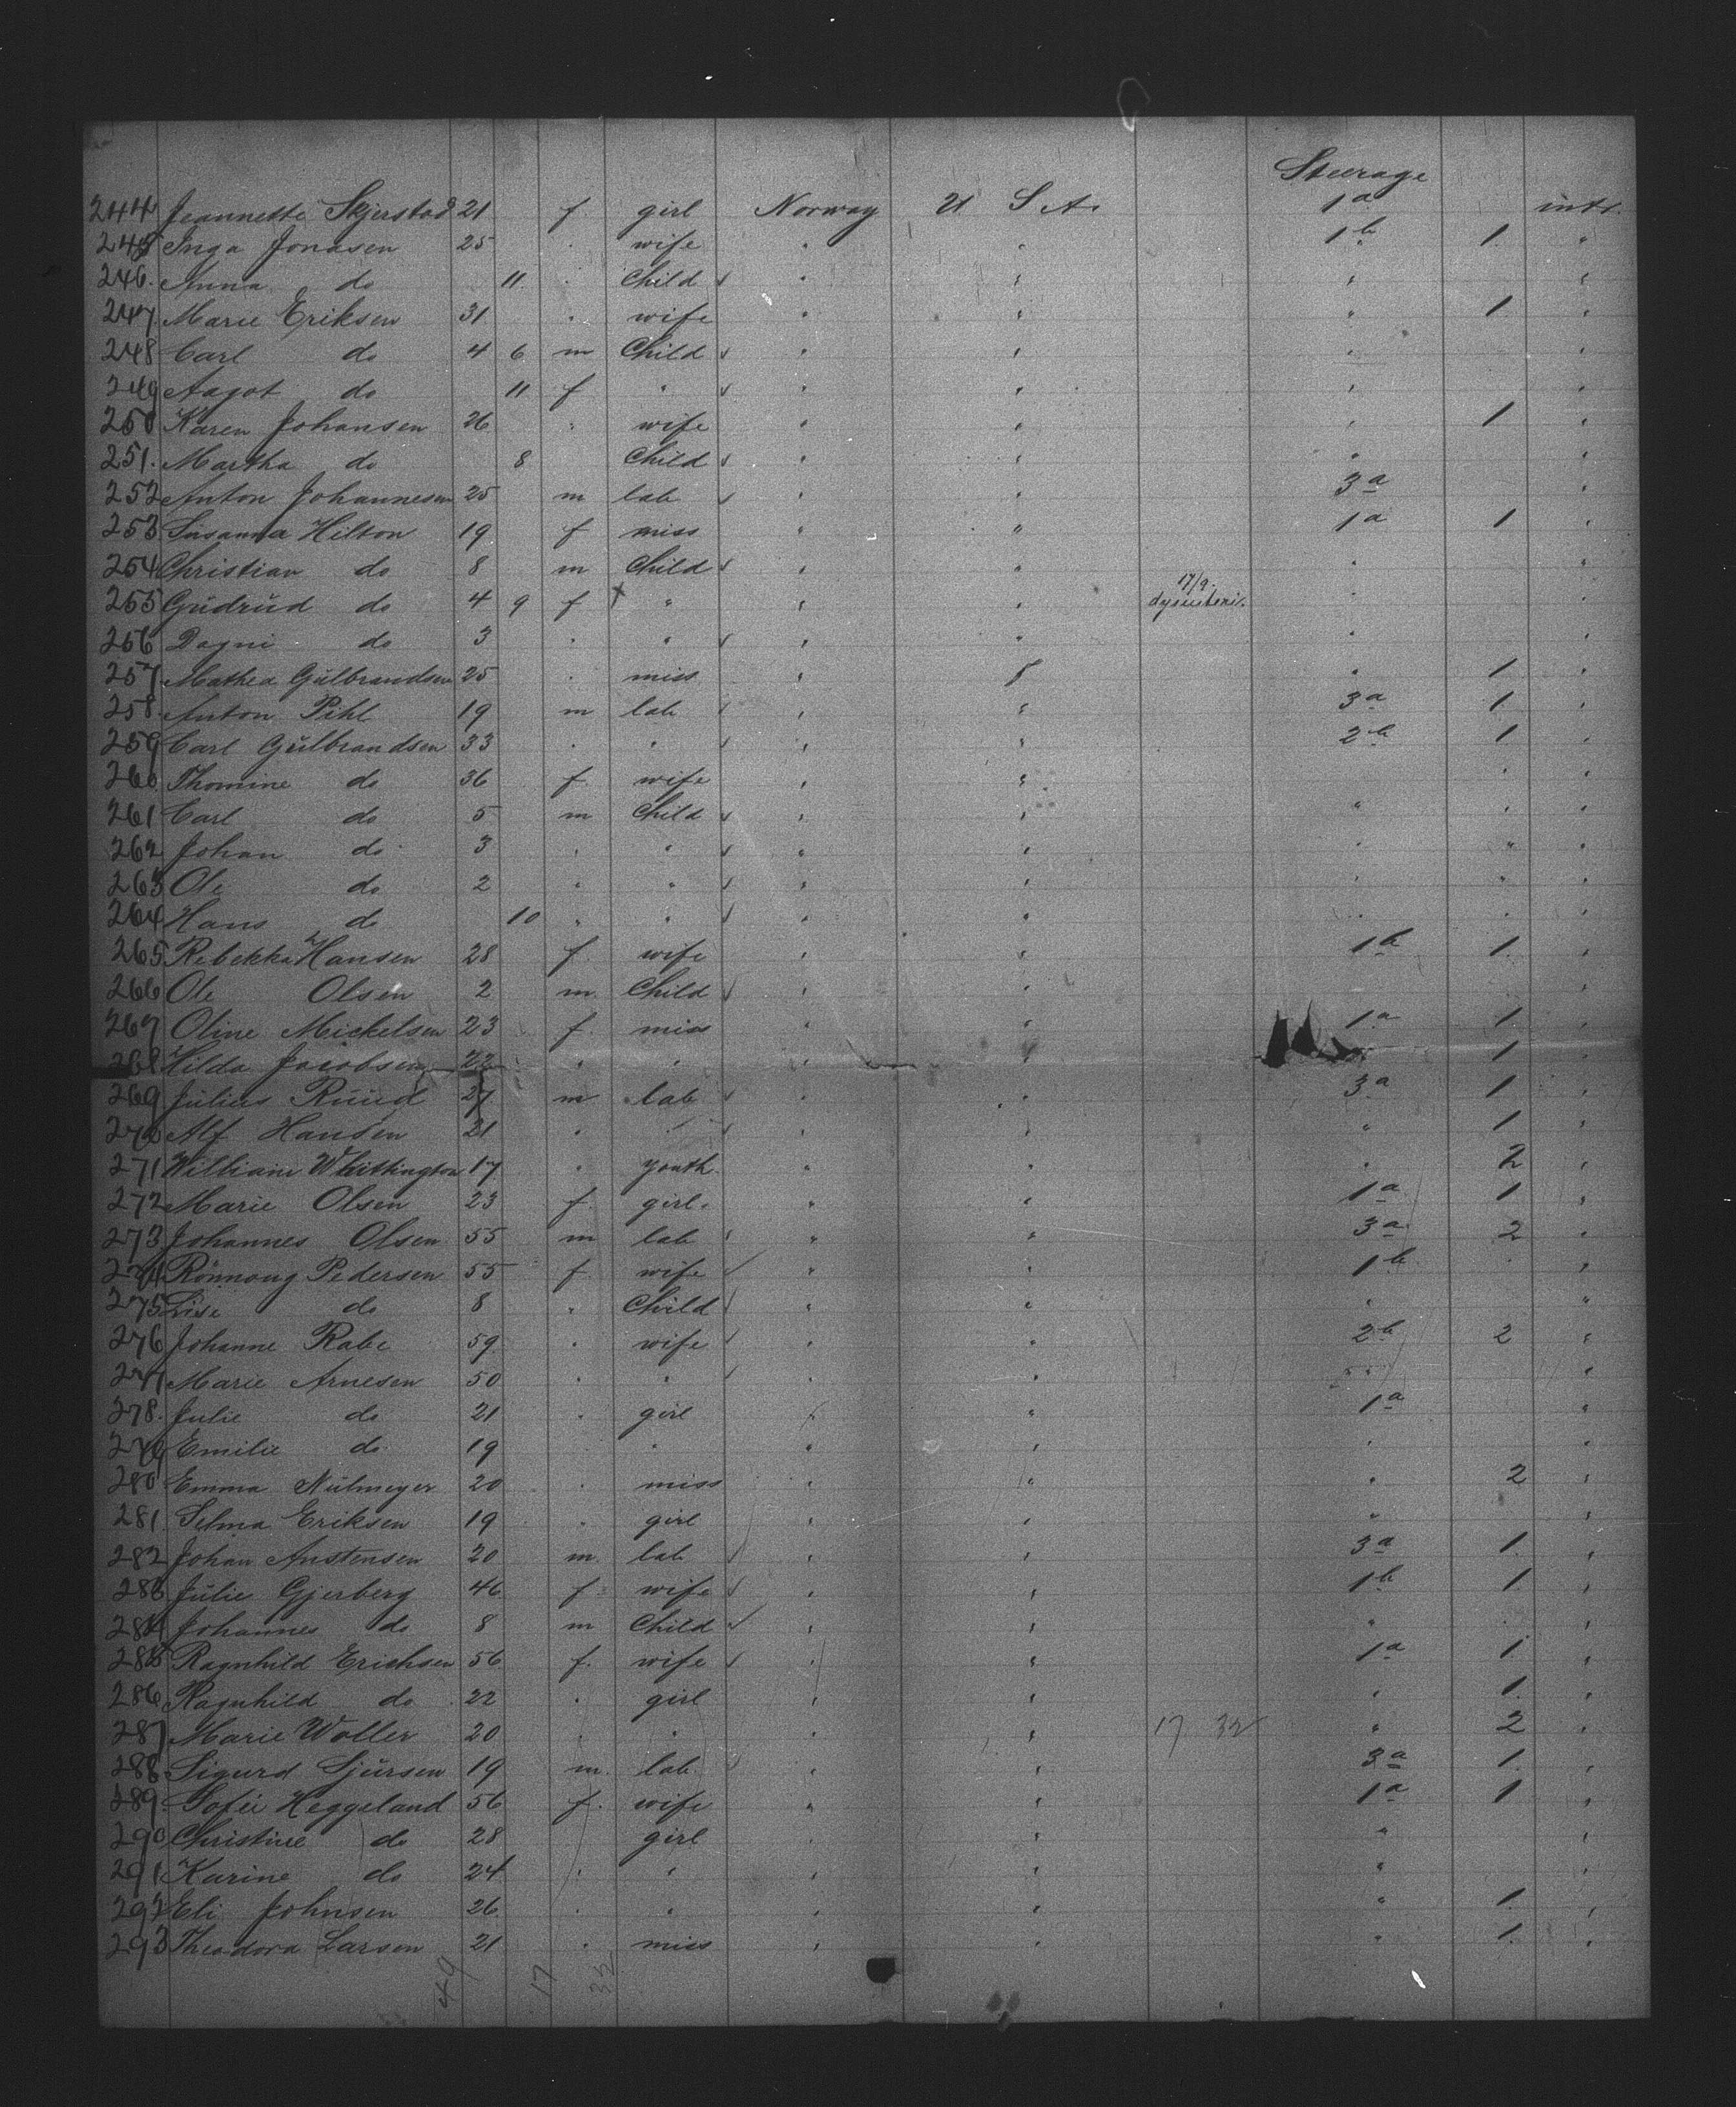 Steerage
244 Jeannette Skjerstad 21 f. girl Norway U S A. 1a intr.
245 Inga Jonasen 25 " wife " " 1b 1 "
246. Anna do 11. " Child " " " "
247. Marie Eriksen 31 " wife " " " 1 "
248 Carl do 4 6 m Child " " " "
249 Aagot do 11 f " " " " "
250 Karen Johansen 26 " wife " " " 1 "
251. Martha do 8 Child " " " "
252 Anton Johannesen 25 m lab " " 3a "
253 Susanna Hilton 19 f miss " " 1a 1 "
254 Christian do 8 m Child " " " "
255 Gudrud do 4 9 f x " " " 17/9. " "
256 Dagni do 3 " " " " " "
257 Mathea Gulbrandsen 25 " miss " " " 1 "
258. Anton Pihl 19 m lab " " 3a 1 "
259 Carl Gulbrandsen 33 " " " " 2b 1 "
260 Thomine do 36 f. wife " " " "
261 Carl do 5 m Child " " " " "
262 Johan do 3 " " " " " " "
263 Ole do 2 " " " " " " "
264 Hans do 10 " " " " " " "
265 Rebekka Hansen 28 f. wife " " 1b 1. "
266 Ole Olsen 2 m. Child " " "
267 Oline Mickelsen 23 f. miss " " 1a 1 "
268 Hilda Jacobsen 22 " " " " 1 "
269 Julius Ruud 27 m lab " " 3a 1 "
270 Alf Hansen 21 " " " " " 1 "
271 William Whittington 17 " youth " " " 2 "
272 Marie Olsen 23 f. girl. " " 1a 1 "
273 Johannes Olsen 55 m lab " " 3a 2 "
274 Rönnoug Pedersen 55 f wife " " 1b " "
275 Lise do 8 " Child " " " "
276 Johanne Rabe 59. " wife " " 2b 2 "
277 Marie Arnesen 50 " " " " " "
278. Julie do 21 " girl " " 1a "
279 Emilie do 19 " " " " "
280 Emma 20 " miss " " " 2 "
281 Selma Eriksen 19 " girl " " " "
282 Johan Anstensen 20 m. lab " " 3a 1. "
283 Julie Gjerberg 46 f wife " " 1b 1 "
284 Johannes do 8 m Child " " " " "
285 Ragnhild Erichsen 56 f. wife " " 1a 1 "
286 Ragnhild do 22 " girl " " " 1. "
287 Marie Woller 20 " " " " 17 32 " 2 "
288 Sigurd Sjursen 19 m. lab. " " 3a 1. "
289. Sofie Heggeland 56 f. wife " " 1a 1 "
290 Christine do 28 girl " " " "
291 Karine do 24 " " " " " "
292 Eli Johnsen 26. " " " " " 1. "
293 Theodora Larsen 21 " miss " " " 1. "
49 17 32